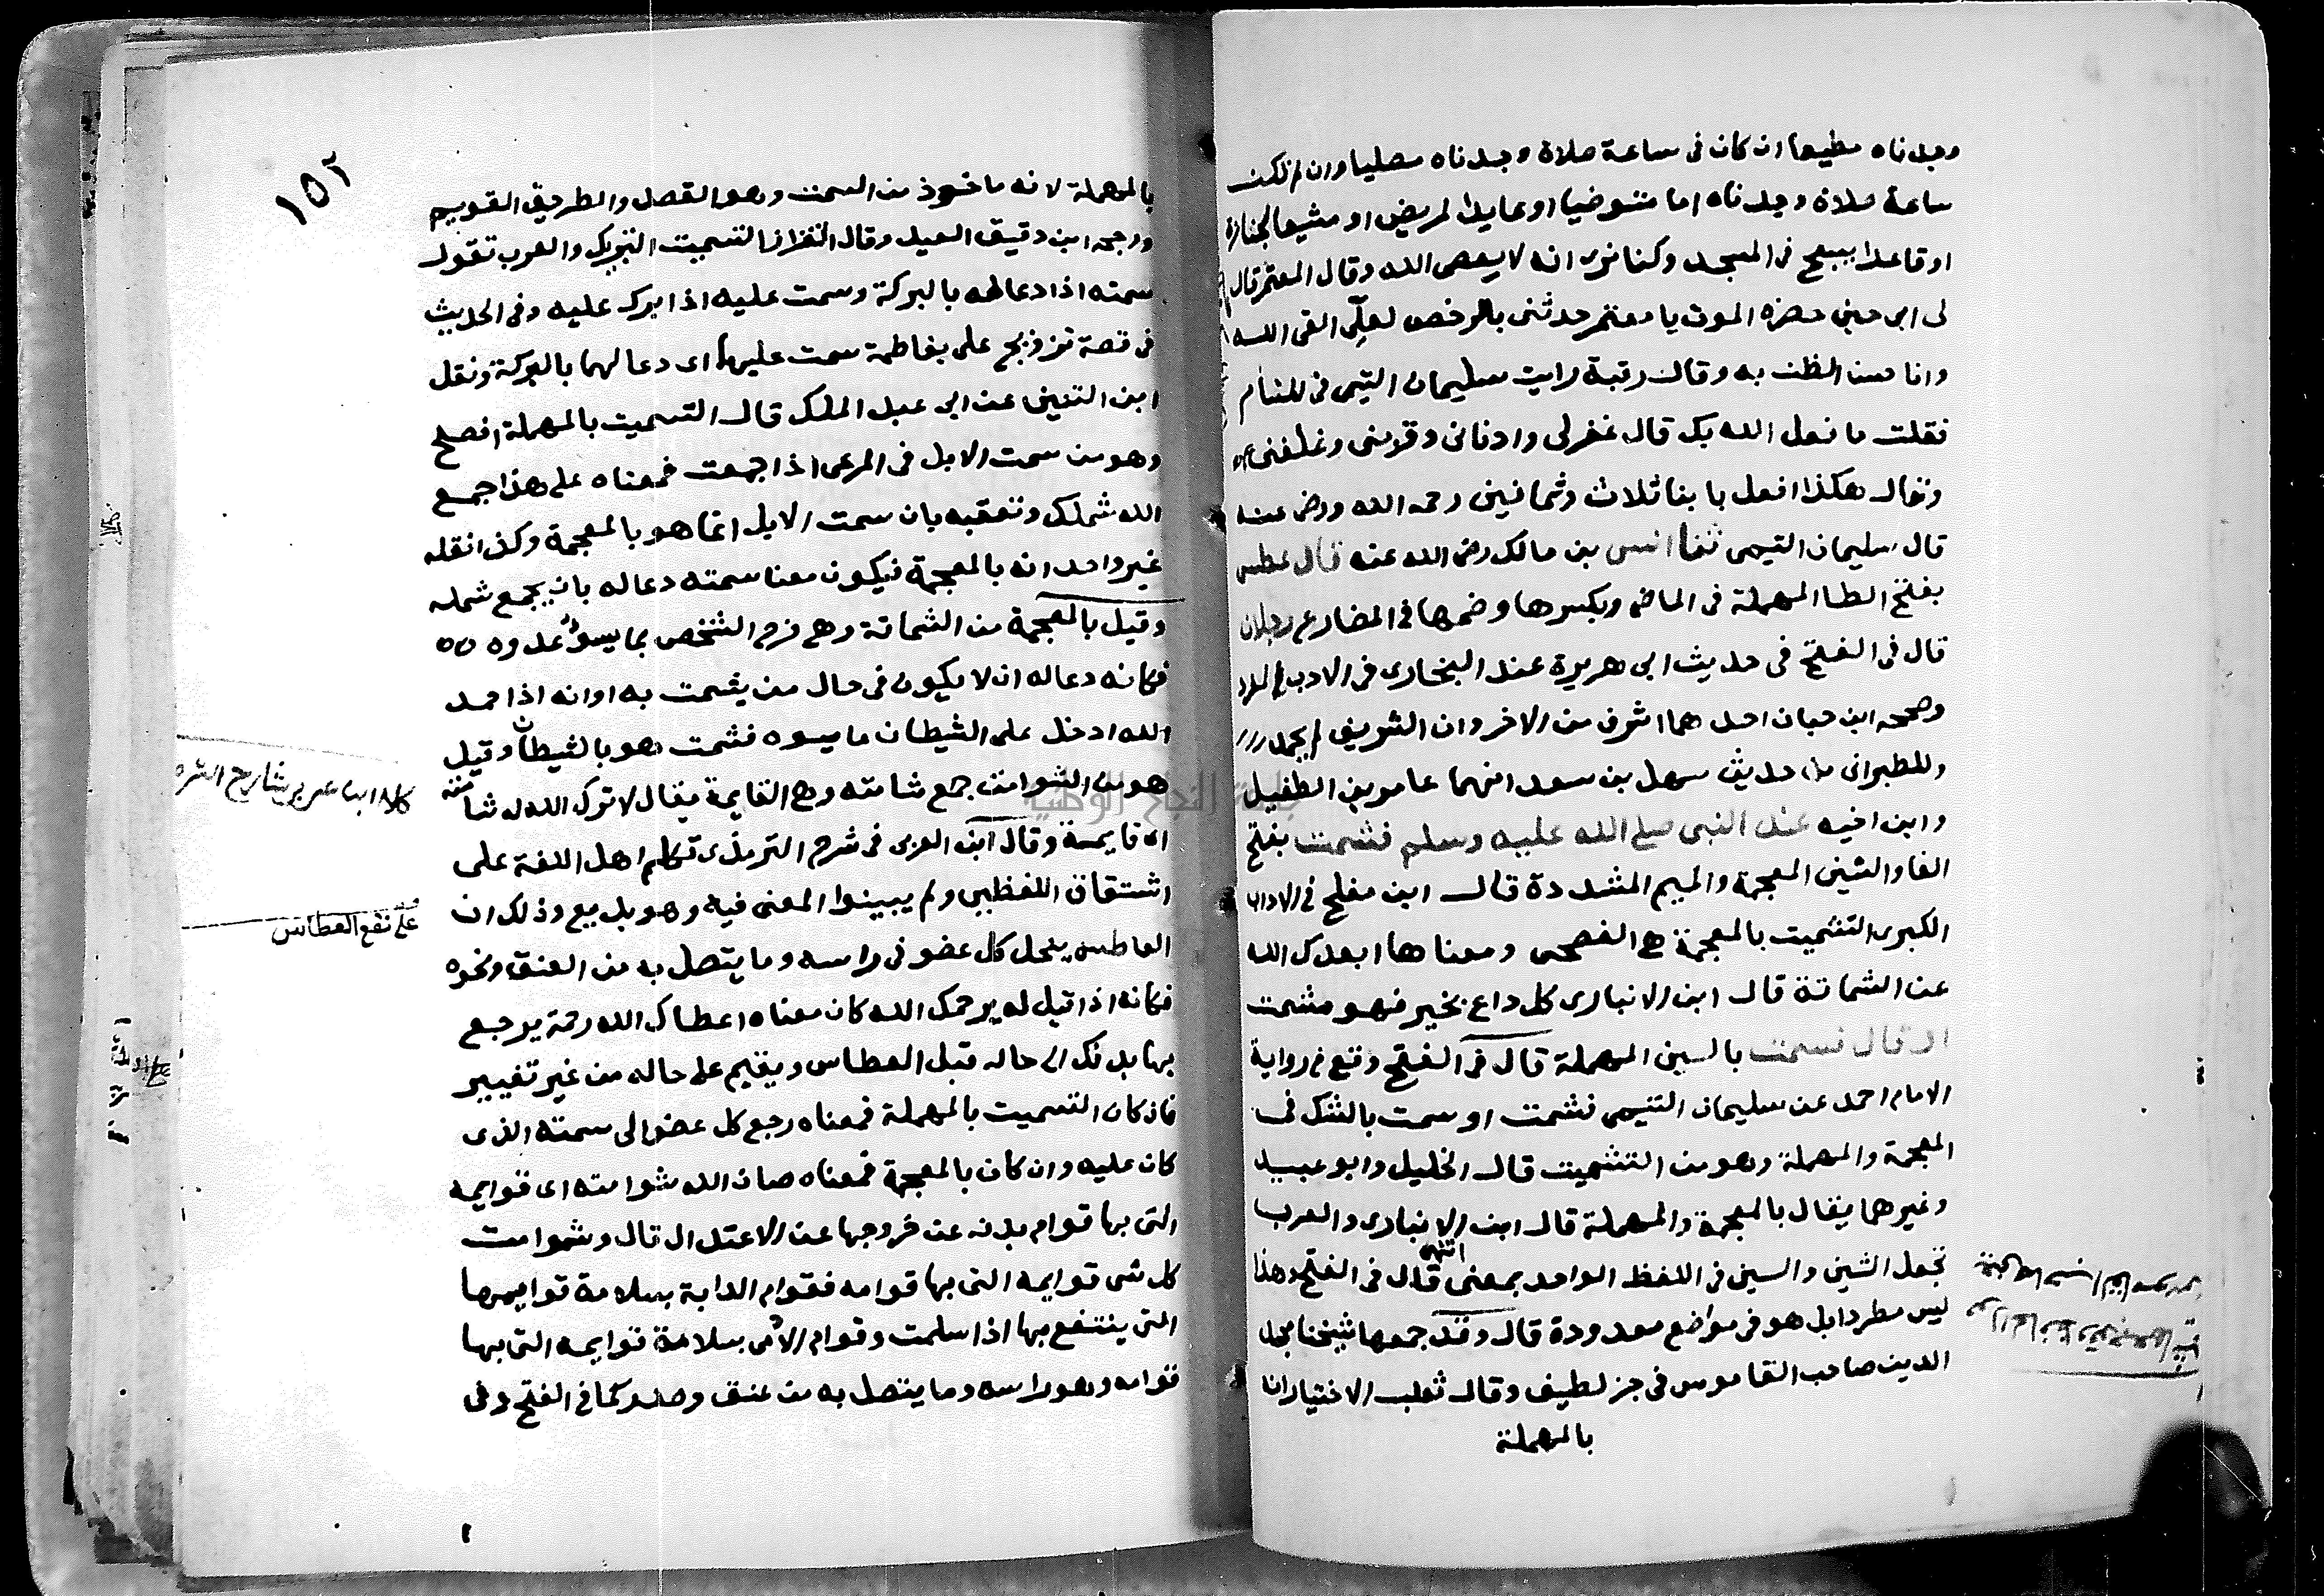 وجدناه مطيعا ان كان في ساعة صلاة وجدناه مصليا وان لم تكن
ساعة صلاة وجدناه اما متوضيا او عايدا لمريض او مشيعا لجنازة
او قاعدا يسبح في المسجد وكنا نرى انه لا يعصى الله وقال المعتمر قال
لى ابى حين حضره الموت يا معتمر حدثنى بالرخص لعلى القى الله
وانا حسن الظن به وقال رقبة رايت سليمان التيمى في المنام
فقلت ما فعل الله بك قال غفر لى وادنانى وقربنى وغلفنى
وقال هكذا افعل بابنا ثلاث وثمانين رحمه الله ورضى عنه
قال سليمان التيمى ثنا انس بن مالك رضى الله عنه قال عطس
بفتح الطا المهملة في الماضى وبكسرها وضمها في المضارع رجلان
قال في الفتح في حديث ابى هريرة عند البخارى في الادب المفرد
وصححه ابن حبان احدهما اشرف من الاخر وان الشريف لم يحمد
وللطبرانى من حديث سهل بن سعد انهما عامر بن الطفيل
وابن اخيه عند النبى صلى الله عليه وسلم فشمت بفتح
الفا والشين المعجمة والميم المشددة قال ابن مفلح في الاداب
الكبرى التشميت بالمعجمة هي الفصحى ومعناها ابعدك الله
عن الشماتة قال ابن الانبارى كل داع بخير فهو مشمت
او قال فسمت بالسين المهملة قال في الفتح وقع في رواية
الامام احمد عن سليمان التيمى فشمت او سمت بالشك في
المعجمة والمهملة وهو من التشميت قال الخليل وابو عبيد
وغيرهما يقال بالمعجمة والمهملة قال ابن الانبارى والعرب
تجعل الشين والسين في اللفظ الواحد بمعنى انتهى قال في الفتح وهذا
ليس مطردا بل هو في مواضع معدودة قال وقد جمعها شيخنا مجد
الدين صاحب القاموس في جز لطيف وقال ثعلب الاختيار انا
بالمهملة
١٥٢
بالمهملة لانه ماخوذ من السمت وهو القصد والطريق القويم
ورجحه ابن دقيق العيد وقال القزاز التسميت التبريك والعرب تقول
سمته اذا دعا له بالبركة وسمت عليه اذا برك عليه وفى الحديث
في قصة تزويج على بفاطمة سمت عليها اى دعا لهما بالبركة ونقل
ابن التين عن ابى عبد الملك قال التسميت بالمهملة افصح
وهو من سمت الابل في المرعى اذا جمعت فمعناه على هذا جمع
الله شملك وتعقبه بان سمت الابل انما هو بالمعجمة وكذا نقله
غير واحد انه بالمعجمة فيكون معنا سمته دعا له بان يجمع شمله
وقيل بالمعجمة من الشماتة وهى فرح الشخص بما يسؤ عدوه
فكانه دعا له ان لا يكون في حال من يشمت به او انه اذا حمد
الله ادخل على الشيطان ما يسوه فشمت هو بالشيطان وقيل
هو من الشوامت جمع شامتة وهى القايمة يقال لا ترك الله له شامتة
اى قايمة وقال ابن العربى في شرح الترمذى تكلم اهل اللغة على
اشتقاق اللفظين ولم يبينوا المعنى فيه وهو بديع وذلك ان
العاطس ينحل كل عضو في راسه وما يتصل به من العنق ونحوه
فكانه اذا قيل له يرحمك الله كان معناه اعطاك الله رحمة يرجع
بها بدنك الى حاله قبل العطاس ويقيم على حاله من غير تغيير
فان كان التسميت بالمهملة فمعناه رجع كل عضو الى سمته الذى
كان عليه وان كان بالمعجمة فمعناه صان الله شوامته اى قوايمه
التى بها قوام بدنه عن خروجها عن الاعتدال قال وشوامت
كل شى قوايمه التى بها قوامه فقوام الدابة بسلامة قوايمها
التى ينتفع بها اذا سلمت وقوام الادمى بسلامة قوايمه التى بها
قوامه وهو راسه وما يتصل به من عنق وصدر كما في الفتح وفى
على نفع العطاس
جامعة النجاح الوطنية